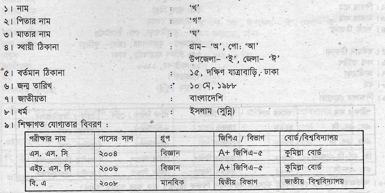 ১। নাম : 'খ'
২। পিতার নাম : 'গ'
৩। মাতার নাম : 'ঘ'
৪। স্থায়ী ঠিকানা : গ্রাম- 'অ', পো: 'আ'
উপজেলা- 'ই', জেলা- 'ঈ'
৫। বর্তমান ঠিকানা : ১৫, দক্ষিণ যাত্রাবাড়ি, ঢাকা
৬। জন্ম তারিখ : ১০ মে, ১৯৮৮
৭। জাতীয়তা : বাংলাদেশি
৮। ধর্ম : ইসলাম (সুন্নি)
৯। শিক্ষাগত যোগ্যতার বিবরণ :
পরীক্ষার নাম পাসের সাল গ্রুপ জিপিএ / বিভাগ বোর্ড/বিশ্ববিদ্যালয়
এস. এস. সি ২০০৪ বিজ্ঞান A+ জিপিএ-৫ কুমিল্লা বোর্ড
এইচ. এস. সি ২০০৬ বিজ্ঞান A+ জিপিএ-৫ কুমিল্লা বোর্ড
বি. এ ২০০৮ মানবিক দ্বিতীয় বিভাগ জাতীয় বিশ্ববিদ্যালয়